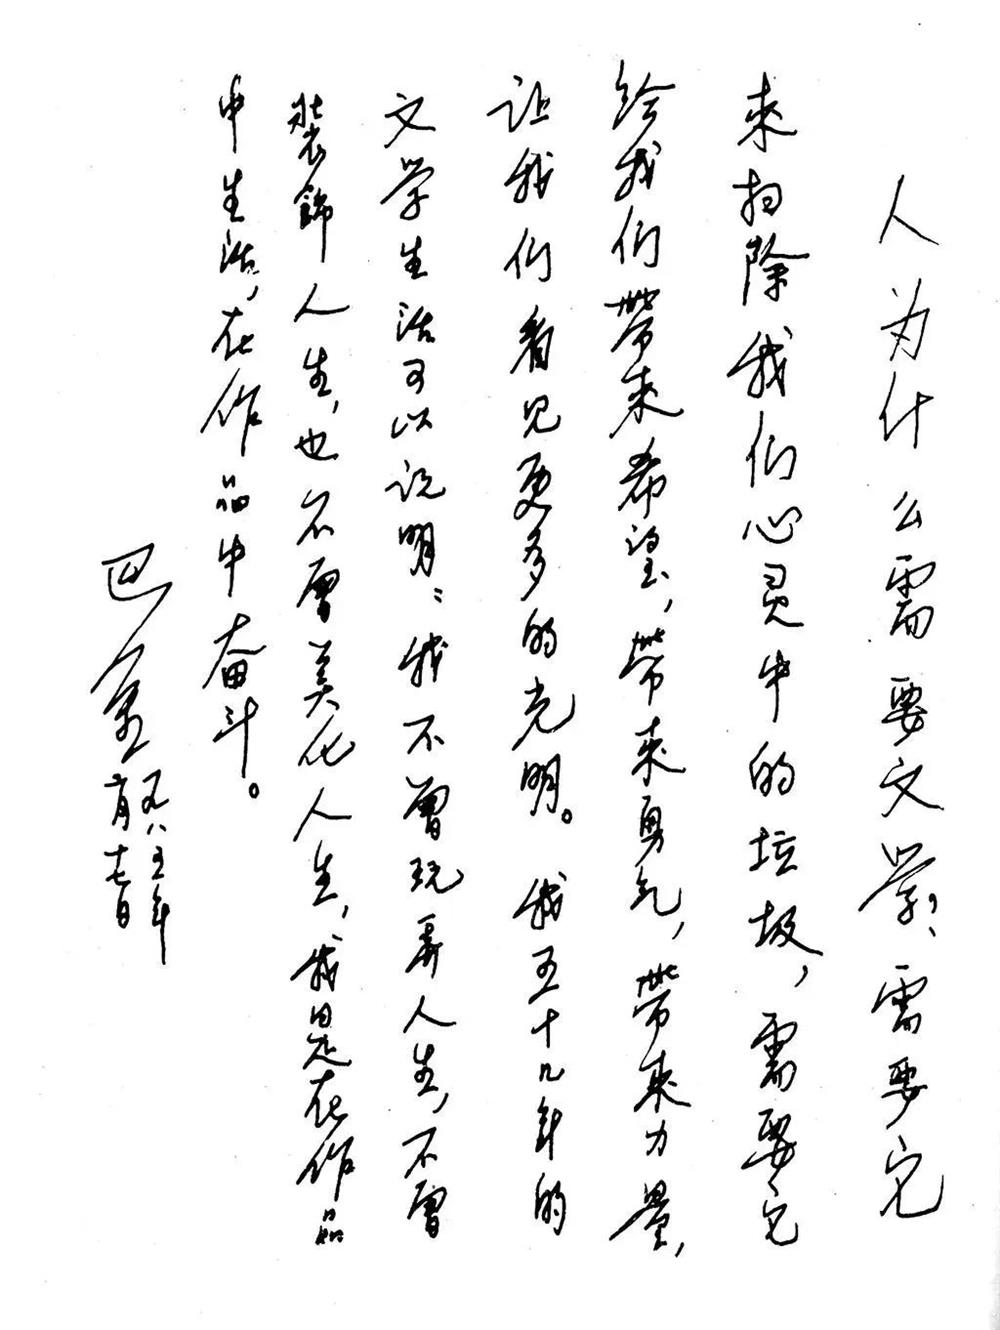 人为什么需要文学？需要它
来扫除我们心灵中的垃圾，需要它
给我们带来希望，带来勇气，带来力量，
让我们看见更多的光明。我五十几年的
文学生活可以说明：我不曾玩弄人生，不曾
装饰人生，也不曾美化人生，我是在作品
中生活，在作品中奋斗。
巴金
一九八五年
六月十七日